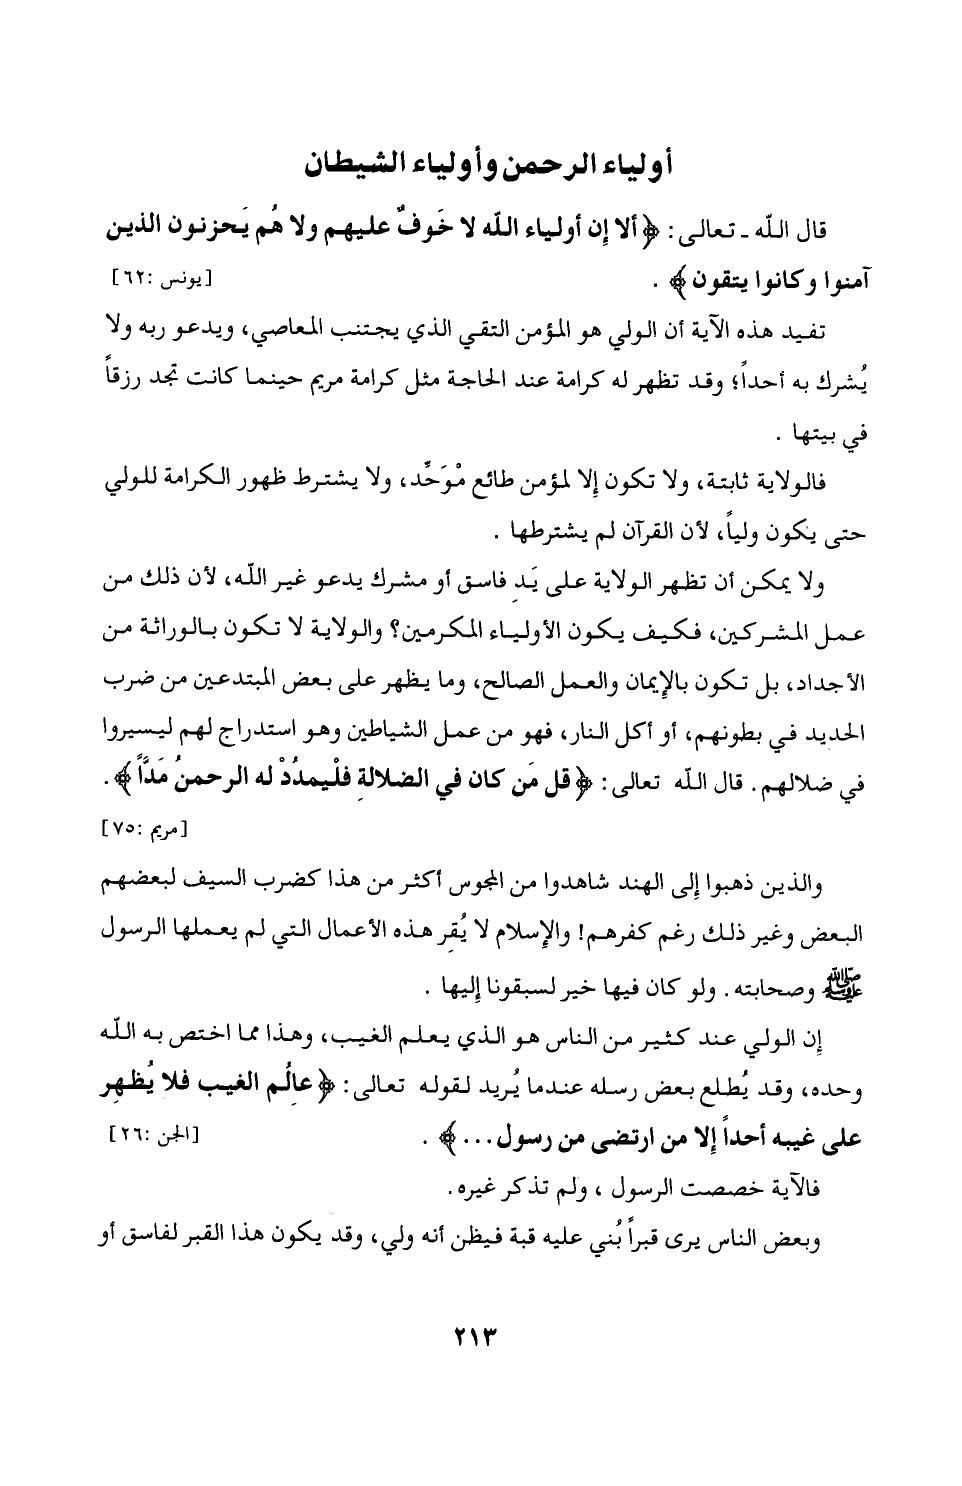 أولياء الرحمن وأولياء الشيطان
قال اللّه ـ تعالى : ﴿ ألا إن أولياء اللّه لا خَوفٌ عليهم ولا هُم يَحزنون الذين
آمنوا وكانوا يتقون ﴾ . [يونس :٦٢]
تفيد هذه الآية أن الولي هو المؤمن التقي الذي يجتنب المعاصي، ويدعو ربه ولا
يُشرك به أحداً؛ وقد تظهر له كرامة عند الحاجة مثل كرامة مريم حينما كانت تجد رزقاً
في بيتها .
فالولاية ثابتة، ولا تكون إلا لمؤمن طائع مْوَحِّد، ولا يشترط ظهور الكرامة للولي
حتى يكون ولياً، لأن القرآن لم يشترطها .
ولا يمكن أن تظهر الولاية على يَدِ فاسق أو مشرك يدعو غير اللّه، لأن ذلك من
عمل المشركين، فكيف يكون الأولياء المكرمين؟ والولاية لا تكون بالوراثة من
الأجداد، بل تكون بالإيمان والعمل الصالح، وما يظهر على بعض المبتدعين من ضرب
الحديد في بطونهم، أو أكل النار، فهو من عمل الشياطين وهو استدراج لهم ليسيروا
في ضلالهم. قال اللّه تعالى : ﴿ قل مَن كان في الضلالةِ فلْيمدُدْ له الرحمنُ مَدَّاً ﴾.
[مريم :٧٥]
والذين ذهبوا إلى الهند شاهدوا من المجوس أكثر من هذا كضرب السيف لبعضهم
البعض وغير ذلك رغم كفرهم! والإسلام لا يُقِر هذه الأعمال التي لم يعملها الرسول
ﷺ وصحابته. ولو كان فيها خير لسبقونا إليها .
إن الولي عند كثير من الناس هو الذي يعلم الغيب، وهذا مما اختص به اللّه
وحده، وقد يُطلع بعض رسله عندما يُريد لقوله تعالى : ﴿ عالُم الغيب فلا يُظهِر
على غيبه أحداً إلا من ارتضى من رسول... ﴾ . [الجن :٢٦]
فالآية خصصت الرسول ، ولم تذكر غيره.
وبعض الناس يرى قبراً بُني عليه قبة فيظن أنه ولي، وقد يكون هذا القبر لفاسق أو
٢١٣